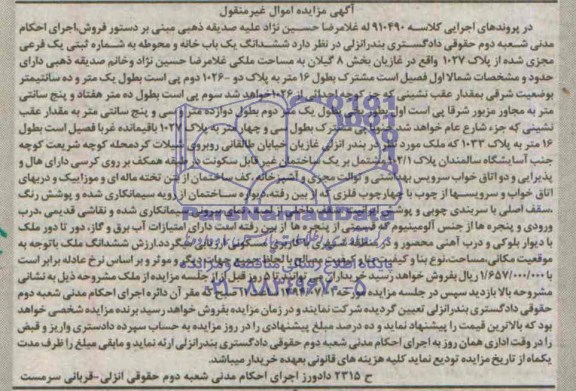 آگهی مزایده اموال غیرمنقول
در پرونده‌های اجرایی کلاسه ۹۱۰۴۹۰ له غلامرضا حسین نژاد علیه صدیقه ذهبی مبنی بر دستور فروش، اجرای احکام
مدنی شعبه دوم حقوقی دادگستری بندرانزلی در نظر دارد ششدانگ یک باب خانه و محوطه به شماره ثبتی یک فرعی
مجزی شده از پلاک ۱۰۲۷ واقع در غازیان بخش ۸ گیلان به مساحت ملکی غلامرضا حسین نژاد وخانم صدیقه ذهبی دارای
حدود و مشخصات شمالا اول فصیل است مشترک بطول ۱۶ متر به پلاک دو -۱۰۲۶ دوم پی است بطول یک متر و ده سانتیمتر
بوضعیت شرقی بمقدار عقب نشینی که جز کوچه احداثی از ۱۰۲۶ خواهد شد سوم پی است بطول ده متر هفتاد و پنج سانتی
متر به مجاور مزبور شرقا پی است اول بطول یک متر دوم بطول دوازده متر و پنج سانتی متر به مقدار عقب
نشینی که جزء شارع عام خواهد شد مشترک بطول سی و چهار متر به پلاک ۱۰۲۷ باقیمانده غربا فصیل است بطول
۱۶ متر به پلاک ۱۰۳۳ که ملک مورد نظر در بندر انزلی غازیان خیابان طالقانی روبروی شیلات کردمحله کوچه شریعت کوچه
جنب آسایشگاه سالمندان پلاک ۱۰۲/۱ مشتمل بر یک ساختمان غیر قابل سکونت در طبقه همکف بر روی کرسی دارای هال و
پذیرایی و دو اتاق خواب سرویس بهداشتی و توالت مجزی و آشپزخانه، کف ساختمان از بتن تخته ماله ای و موزاییک و دربهای
اتاق خواب و سرویسها از چوب با چهارچوب فلزی که از بین رفته دیوار ساختمان از رویه سیمانکاری شده و پوشش رنگ
،سقف اصلی با سربندی چوبی و پوشش سیمانکاری شده و نقاشی قدیمی ،درب
ورودی و پنجره ها از جنس آلومینیوم که قسمتی از پنجره ها از بین رفته است دارای امتیازات آب برق و گاز، دور تا دور ملک
با دیوار بلوکی و درب آهنی محصور و در منطقه شهری با کاربری مسکونی ارزیابی میگردد.ارزش ششدانگ ملک باتوجه به
موقعیت مکانی،مساحت،نوع بنا و کیفیت مصالح با لحاظ جمیع جهات دیگر و موثر و بر اساس نرخ عادله برابر است
با ۱/۶۵۷/۰۰۰/۰۰۰ ریال بفروش خواهد رسید خریداران می توانند تا ۵ روز قبل از از جلسه مزایده از ملک مشروحه ذیل به نشانی
مشروحه بالا بازدید سپس در جلسه مزایده مورخه صبح که مقر آن دائره اجرای احکام مدنی شعبه دوم
حقوقی دادگستری بندرانزلی تعیین گردیده شرکت نمایند و در زمان مزایده بفروش خواهد رسید برنده مزایده شخصی خواهد
بود که بالاترین قیمت را پیشنهاد نماید و ده درصد مبلغ پیشنهادی را در روز مزایده به حساب سپرده دادستری واریز و قبض
را در وقت اداری همان روز به اجرای احکام مدنی شعبه دوم حقوقی دادگستری بندرانزلی ارئه نماید و مابقی مبلغ را ظرف مدت
یکماه از تاریخ مزایده تودیع نماید کلیه هزینه های قانونی بعهده خریدار میباشد.
ح ۲۳۱۵ دادورز اجرای احکام مدنی شعبه دوم حقوقی انزلی-قربانی سرمست
ParsNamadData
پایگاه اطلاع رسانی مناقصه و مزایده
۰۲۱-۸۸۳۴۹۶۷۰-۵